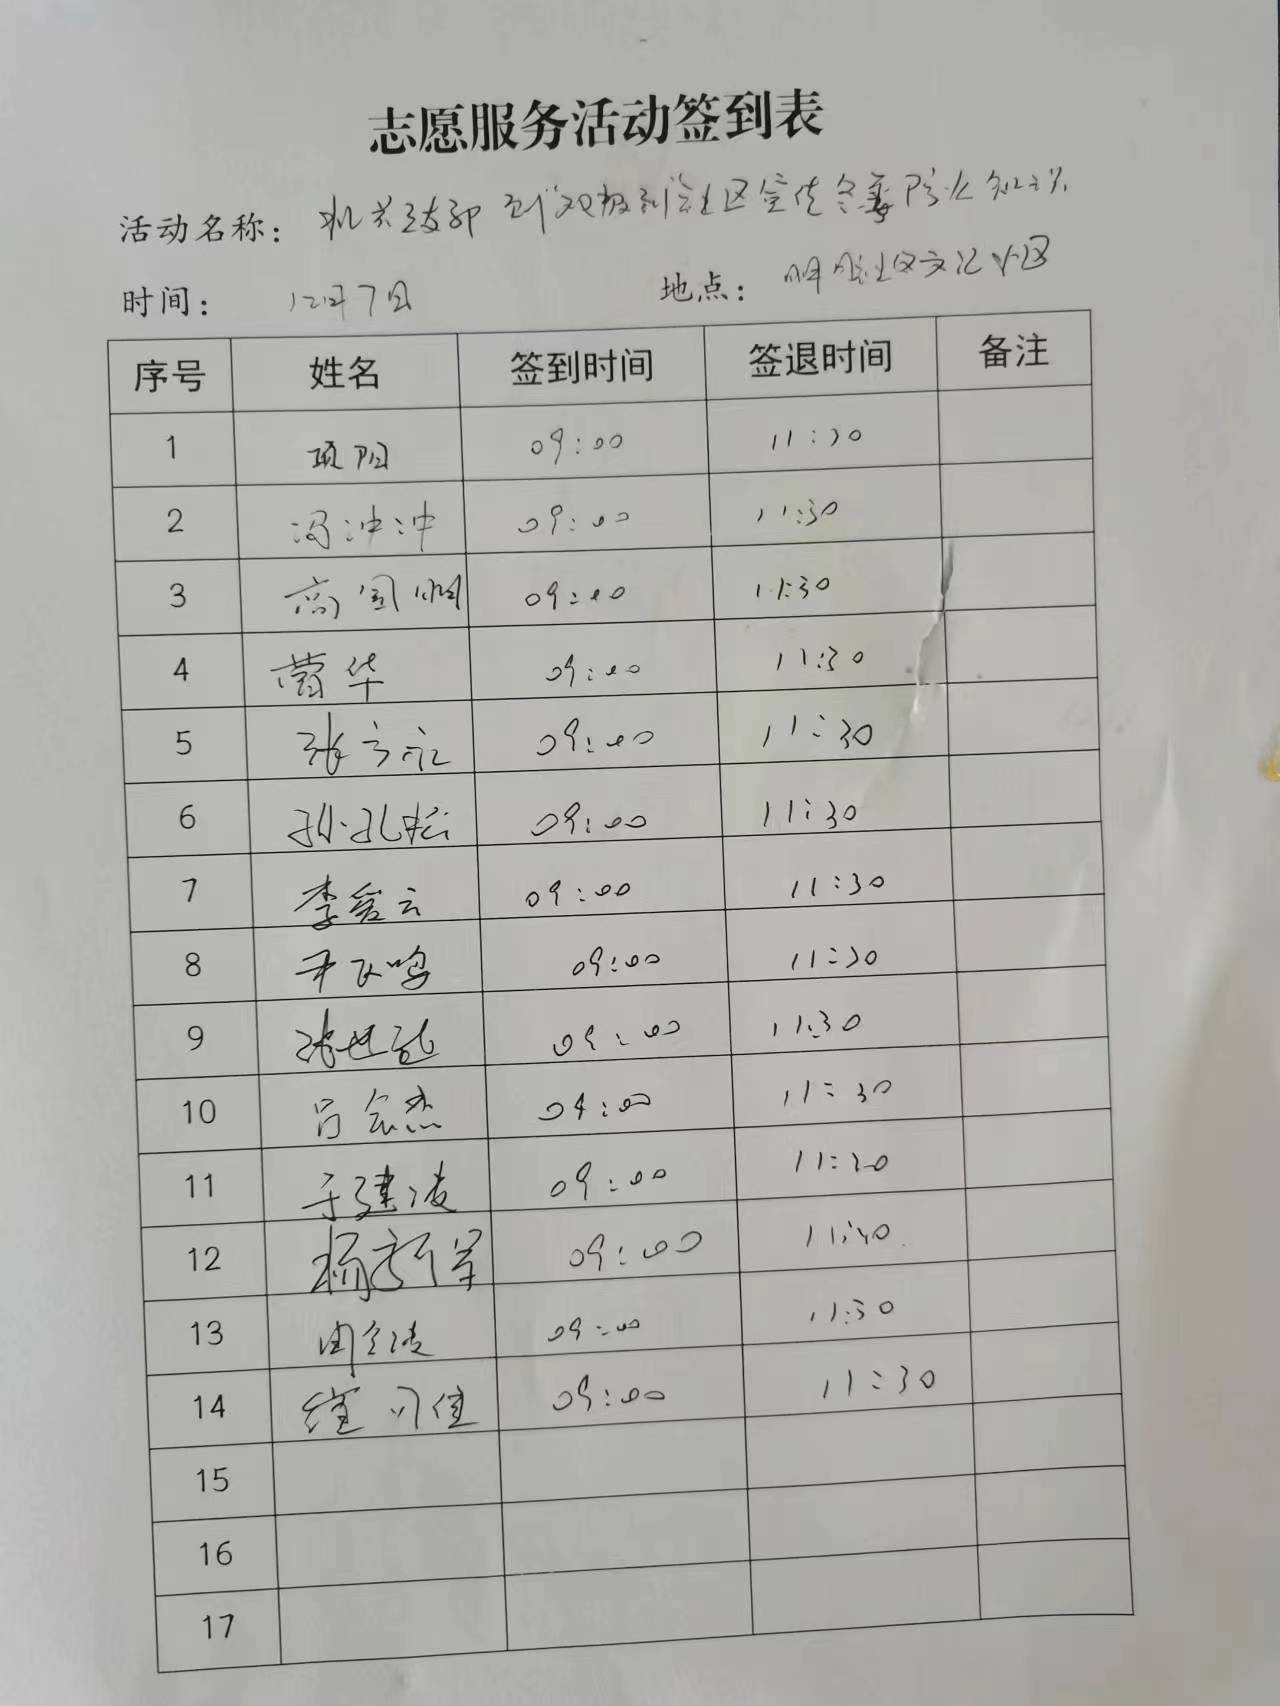 志愿服务活动签到表
活动名称： 机关支部 到 社区宣传冬季防火知识
时间： 12月7日 地点： 社区文汇小区
序号 姓名 签到时间 签退时间 备注
1 项阳 09:00 11:30
2 冯冲冲 09:00 11:30
3 高国 09:00 11:30
4 曹华 09:00 11:30
5 张方永 09:00 11:30
6 孙孔 09:00 11:30
7 李爱云 09:00 11:30
8 尹飞鸣 09:00 11:30
9 张世龙 09:00 11:30
10 吕会杰 09:00 11:30
11 于建凌 09:00 11:30
12 杨新军 09:00 11:30
13 09:00 11:30
14 可佳 09:00 11:30
15
16
17